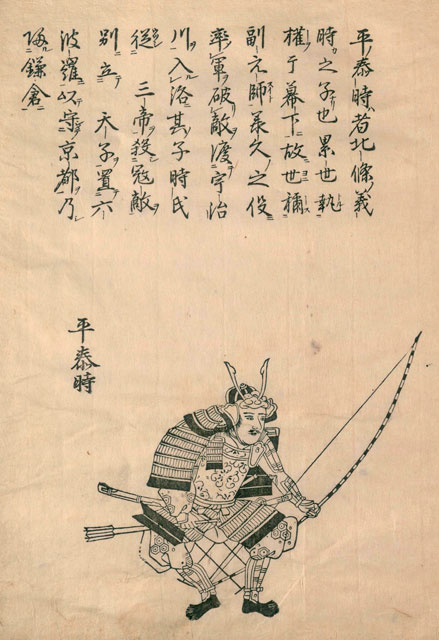 平泰時者北條義
時之子也累世執
權于幕下故世稱
副元帥承久之役
率軍破敵渡宇治
川入洛其子時氏
從 三帝殺冦敵
別立 天子置六
波羅以守京都乃
歸鎌倉
平泰時